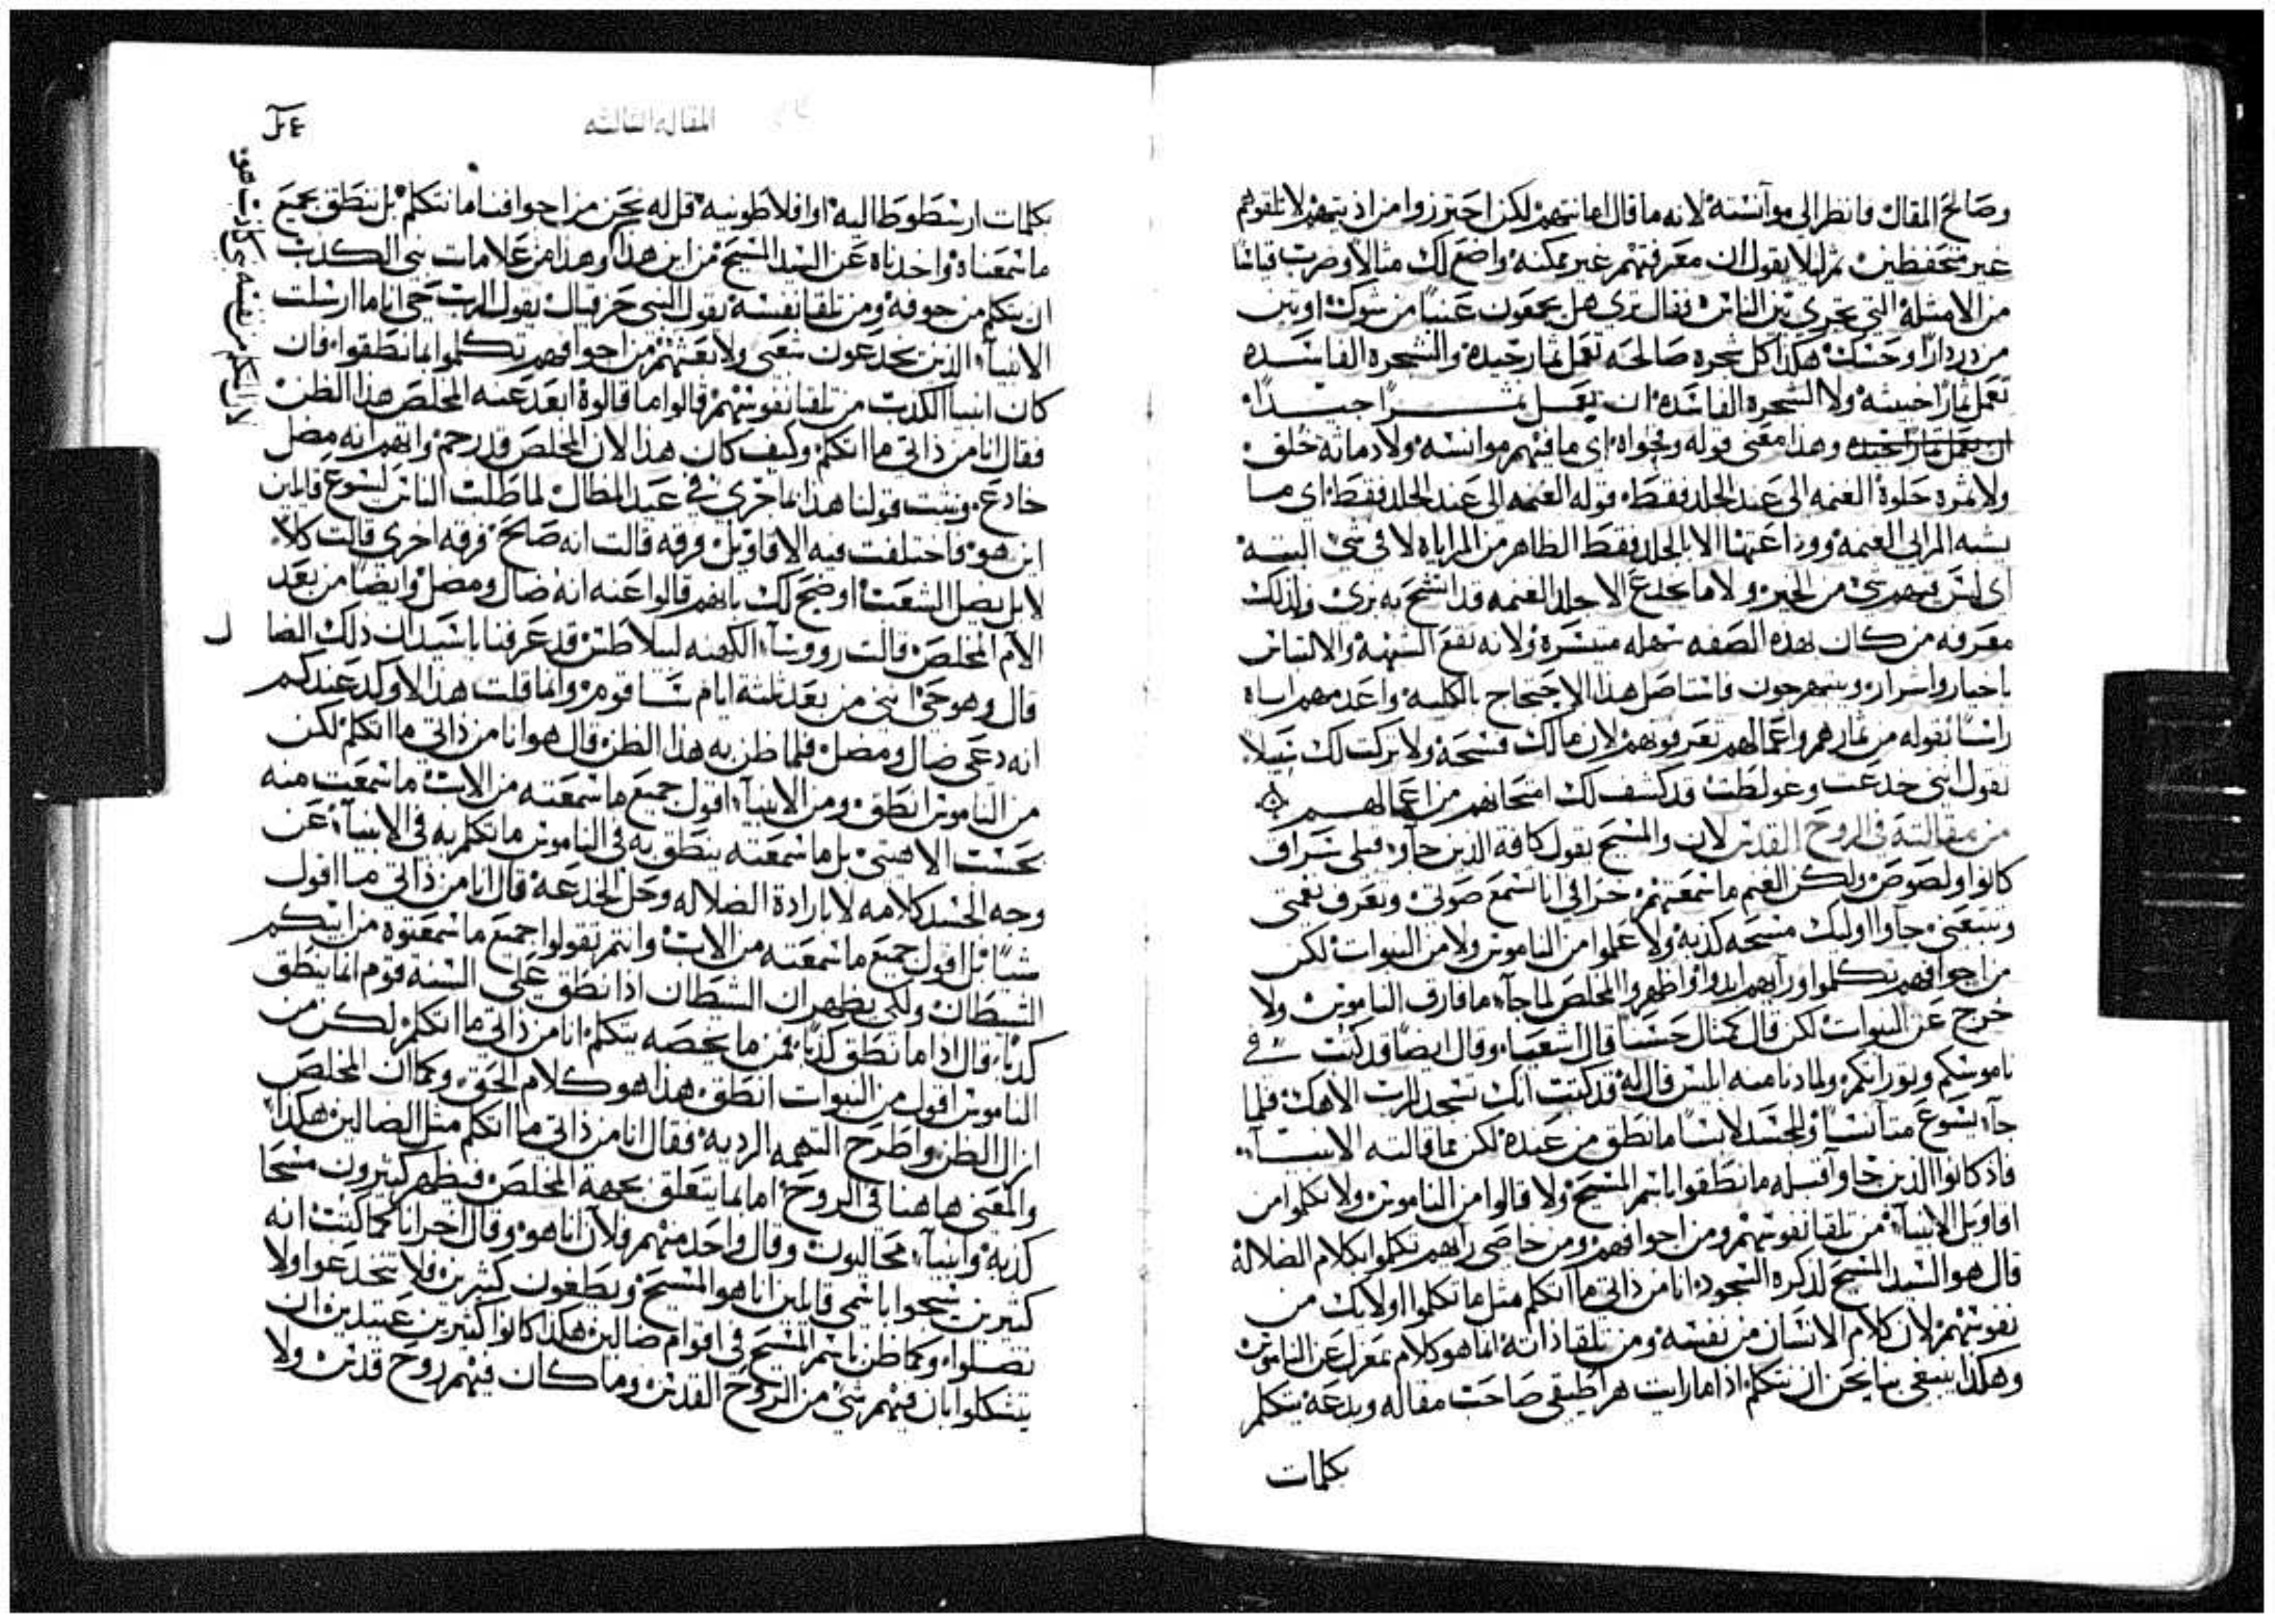 وصالح المقال فانظر الى موآنسته لانه ما قال امانتهم لكن احترزوا من اذيتهم لا تلقوهم
غير متحفظين ثم ليلا يقول ان معرفتهم غير ممكنه واضع لك مثالا وضرب قياسا
من الامثله التي تجري بين الناس فقال ترى هل يجمعون عنبا من شوك او تين
من دردارا وحسك هكذا كل شجره صالحه تعمل ثمار جيده والشجره الفاسده
تعمل ثمارا خبيثه ولا الشجره الفاسده ان تعمل ثمرا جيدا
ان تعمل ثمارا جيده وهذا معنى قوله وفحواه اي ما فيهم موانسه ولا دماثه خلق
ولا ثمره حلوة الغنمه الى عند الجلد فقط قوله الغنمه الى عند الجلد فقط اي ما
يشبه المرايي الغنمه ووداعتها الا بالجلد فقط الظاهر من المراياه لا في شي البته
اي ليس فيهم شي من الخير ولا ما يخدع الا جلد الغنمه قد اتشح به بري ولذلك
معرفه من كان بهذه الصفه سهله متيسره ولانه تقع الشبهه والالتباس
باخيار واشرار ويتبهرجون فاستاصل هذا الاحتجاج بالكليه واعدمهم اياه
راسا بقوله من ثمارهم واعمالهم تعرفونهم لان ما لك فسحه ولا تركت لك سبيلا
تقول انني خدعت وغولطت قد كشف لك امتحانهم من اعمالهم
من مقالته في الروح القدس لان والمسيح يقول كافة الذين جآو قبلي سراق
كانوا ولصوص ولكن الغنم ما سمعتهم خرافي انا تسمع صوتي وتعرف نغمتي
وتتبعني جآوا اوليك مسيحه كذبه ولا عملوا من الناموس ولا من النبوات لكن
من اجوافهم تكلموا ورآيهم ابدوا واظهروا المخلص لما جآء ما فارق الناموس ولا
خرج عن النبوات لكن قال كمثال حسنا قال اشعيا وقال ايضا قد كتب في
ناموسكم وتوراتكم ولما دنا منه ابليس قال له قد كتبت انك تسجد للرب الاهك فلما
جآء يسوع متآنسا وللجسد لابسا ما نطق من عنده لكن مما قالته الانبيآء
فاذ كانوا الذين جاوآ قبله ما نطقوا باسم المسيح ولا قالوا من الناموس ولا تكلموا من
اقاويل الانبيآء من تلقا نفوسهم ومن اجوافهم ومن خاصي رآيهم تكلموا بكلام الضلالة
قال هو السيد المسيح لذكره السجود انا من ذاتي ما اتكلم مثل ما تكلموا اولايك من
نفوسهم لان كلام الانسان من نفسه ومن تلقا ذاته انما هو كلام بمعزل عن الناموس
وهكذا ينبغي بنا نحن ان نتكلم اذا ما رايت هراطيقي صاحب مقاله وبدعه يتكلم
بكلمات
المقاله الثالثه
بكلمات ارسطوطاليه او افلاطونيه قل له نحن من اجوافنا ما نتكلم بل ننطق بجميع
ما سمعناه واخذناه عن السيد المسيح من اين هذا وهذا من علامات نبي الكذب
ان يتكلم من جوفه ومن تلقا نفسه يقول النبي حزقيال يقول الرب حي انا ما ارسلت
الانبيآء الذين يخدعون شعبي ولا بعثتهم من اجوافهم تكلموا لما نطقوا فان
كان انبيا الكذب من تلقا نفوسهم قالوا ما قالوه ابعد عنه المخلص هذا الظن
فقال انا من ذاتي ما اتكلم وكيف كان هذا لان المخلص قد رجم واتهم انه مضل
خادع وثبت قولنا هذا بما جري في عيد المظال لما طلب الناس ليسوع قايلين
اين هو فاختلفت فيه الاقاويل فرقه قالت انه صالح فرقه اخري قالت كلا
لا بل يضل الشعب اوضح لك بانهم قالوا عنه انه ضال ومضل وايضا من بعد
الآم المخلص قالت رووسآء الكهنه لبيلاطس قد عرفنا يا سيد ان ذلك الضا ل
قال وهو حي انني من بعد ثلثة ايام سا قوم وانما قلت هذا لاوكد عندكم
انه دعى ضال ومضل فلما ظن به هذا الظن قال هو انا من ذاتي ما اتكلم لكن
من الناموس انطق ومن الانبيآء اقول جميع ما سمعته من الاب ما سمعت منه
بحسب الاهيتي بل ما سمعته ينطق به في الناموس ما تكلم به في الانبيآء عن
وجه الجسد كلامه لا بارادة الضلاله وحل الخدعه قال انا من ذاتي ما اقول
شيا بل اقول جميع ما سمعته من الاب وانتم تقولوا جميع ما سمعتوه من ابيكم
الشيطان ولكي يظهر ان الشيطان اذا نطق على السنه قوم انما ينطق
كذبا قال اذا ما نطق كذبا فمن ما يخصه يتكلم انا من ذاتي ما اتكلم لكن من
الناموس اقول من النبوات انطق هذا هو كلام الحق وكما ان المخلص
ازال الظن واطرح التهمه الرديه فقال انا من ذاتي ما اتكلم مثل الضالين هكذا
والمعنى هاهنا في الروح اما بما يتعلق بجهة المخلص فيظهر كثيرون مسحا
كذبه وانبيآء محاليون وقال واحد منهم فلآن انا هو وقال اخر انا كما كتب انه
كثيرين سيجوا باسمي قايلين انا هو المسيح ويطغون كثيرين فلا تنخدعوا ولا
تضلوا وكما ظن باسم المسيح في اقوام ضالين هكذا كانوا كثيرين عتيدين ان
يتشكلوا بان فيهم شي من الروح القدس وما كان فيهم روح قدس ولا